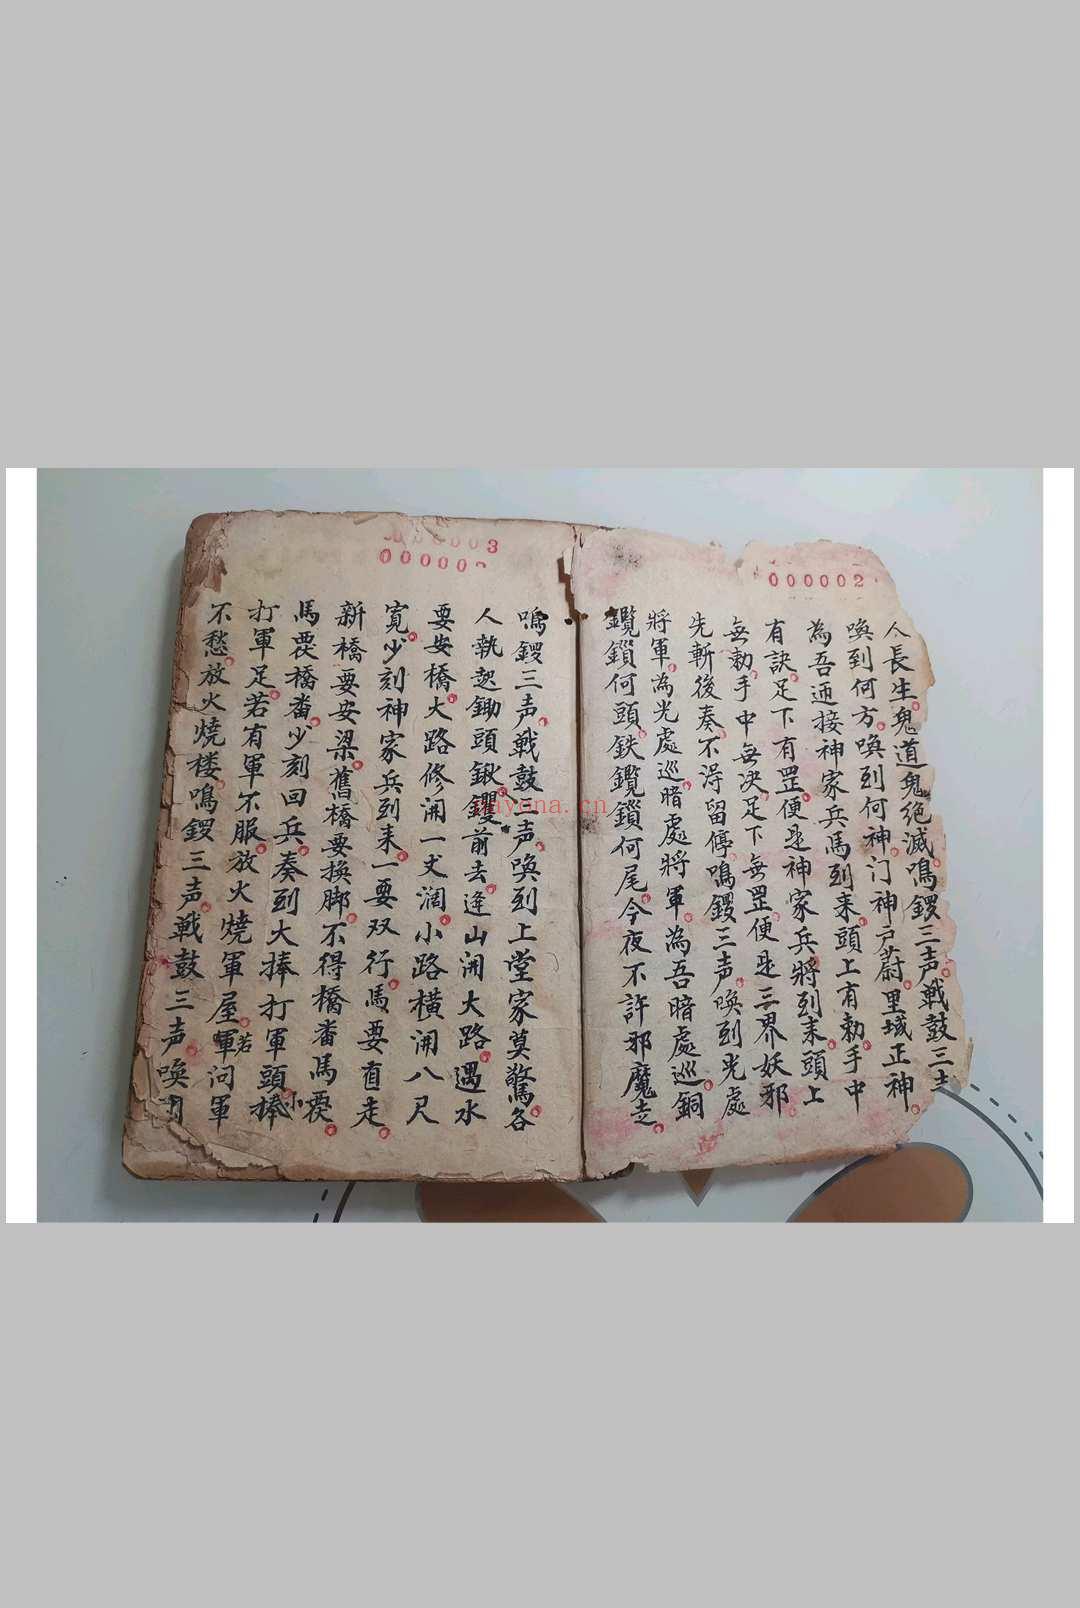 000002
人長生鬼道鬼絕滅鳴鑼三声戦鼓三
喚到何方喚到何神门神户蔚里域正神
為吾迊接神家兵馬到来頭上有勅手中
有訣足下有罡便是神家兵將到来頭上
無勅手中無决足下無罡便是三界妖邪
先斬後奏不淂留停鳴鑼三声喚到光處
將軍為光處巡暗處將軍為吾暗處巡銅
鑬鎖何頭鉄鑬鎖何尾今夜不許邪魔走
000003
000002
鳴鑼三声戦鼓三声喚到上堂家莫驚各
人執起鋤頭鍬钁前去逢山開大路遇水
要安橋大路修開一丈濶小路横開八尺
寛少刻神家兵到来一要双行馬要肩走
新橋要安梁舊橋要换脚不得橋畨馬
馬橋畨少刻回兵奏到大捧打軍頭小捧
打軍足若有軍不服放火燒軍屋若軍问軍
不愁放火燒楼鳴鑼三声戦鼓三声喚
nayona.cn